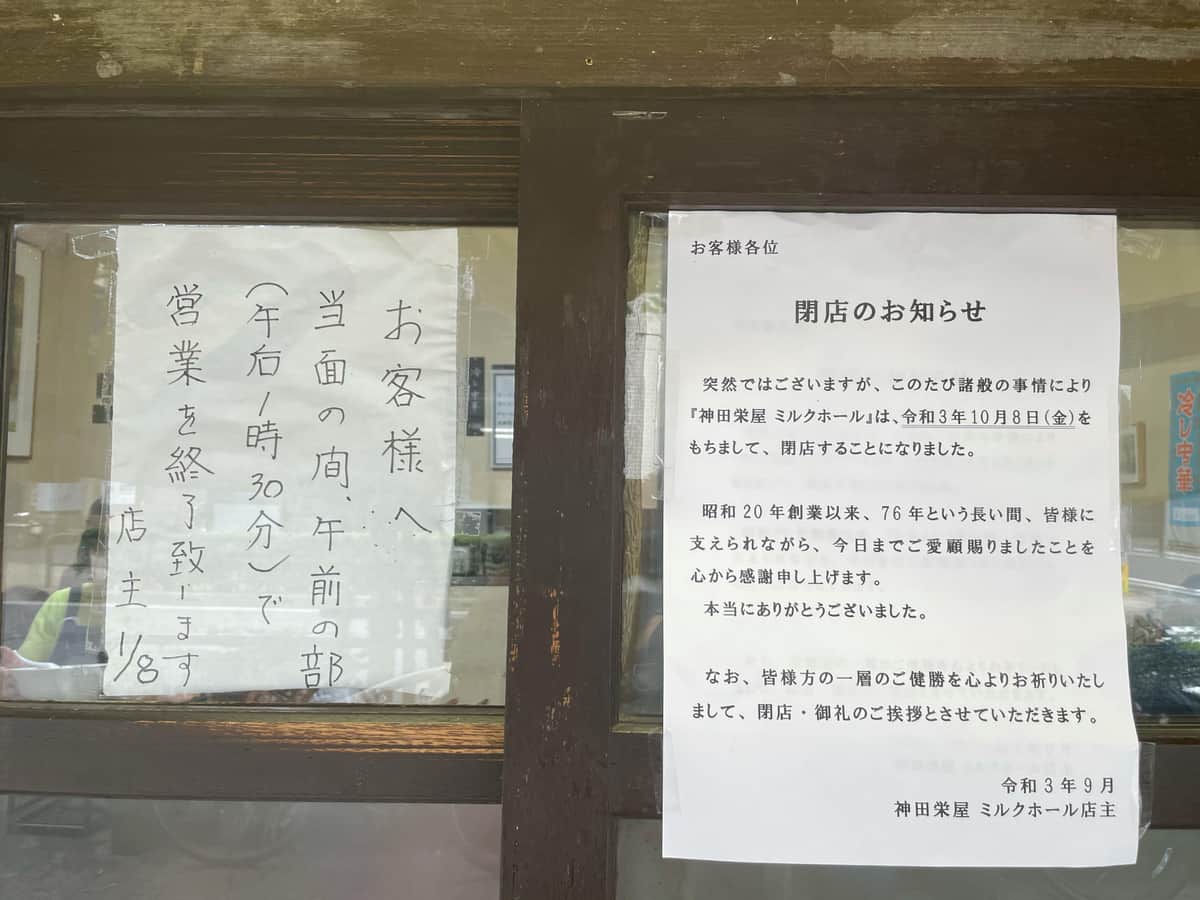 お客様へ
当面の间、午前の部
(午后1時30分)で
営業を終了致します
店主 1/8
お客様各位
閉店のお知らせ
突然ではございますが、このたび諸般の事情により
『神田栄屋 ミルクホール』は、令和3年10月8日(金)を
もちまして、閉店することになりました。
昭和20年創業以来、76年という長い間、皆様に
支えられながら、今日までご愛顧賜りましたことを
心から感謝申し上げます。
本当にありがとうございました。
なお、皆様方の一層のご健勝を心よりお祈りいたし
まして、閉店・御礼のご挨拶とさせていただきます。
令和3年9月
神田栄屋 ミルクホール店主
冷し中華